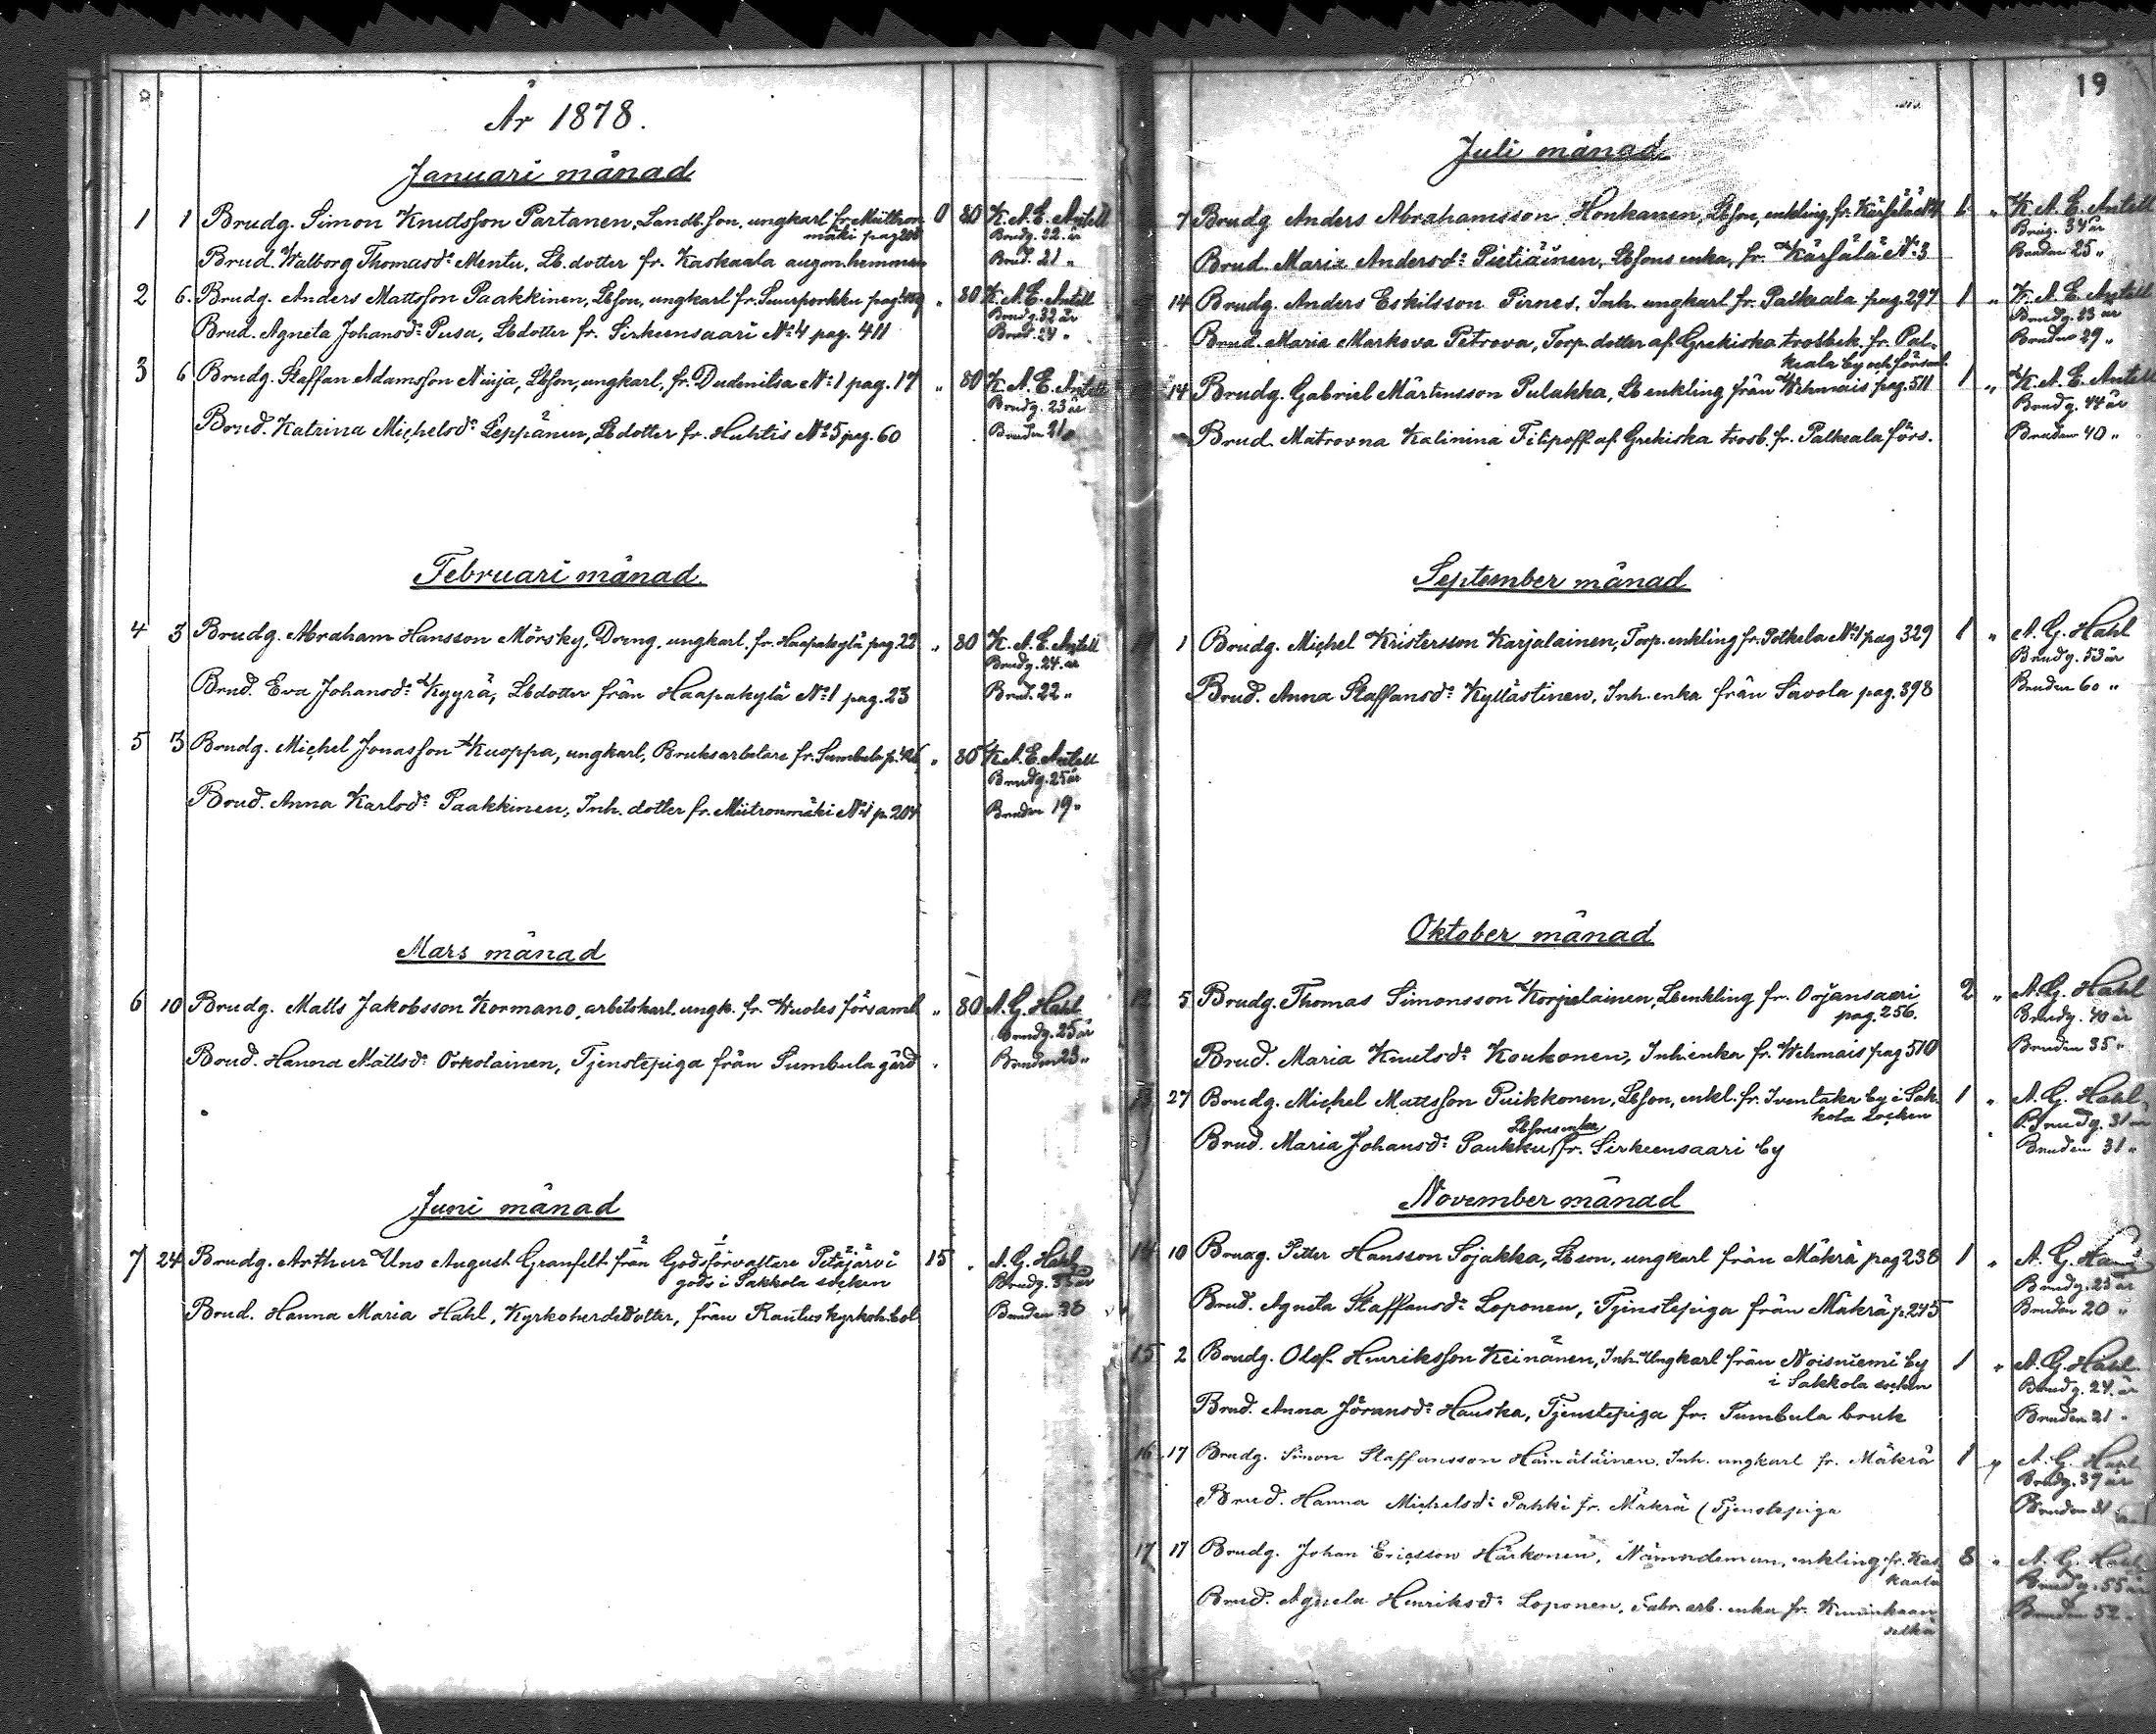 År 1878.
Januari månad
1 1 Brudg. Simon Knutsson Partanen, Landb. son, ungkarl fr. Miitron 0 80 K. A. E. Antell
mäki pag 208 Brudg. 22 år
Brud. Walborg Thomasdr Mentu, Lb. dotter fr. Kaskaala augm. hemman Brud. 21 "
2 6. Brudg. Anders Mattsson Paakkinen, Lbson, ungkarl fr. Suurporkku " 80 K. A. E. Antell
Brudg. 22 år
Brud. Agneta Johansdr Pusa, Lbdotter fr. Sirkeensaari No 4 pag. 411 Brud. 24 "
3 6 Brudg. Staffan Adamsson Ninja, Lbson, ungkarl, fr. Dudmitsa No 1 pag. 17 " 80 K. A. E. Antell
Brudg. 23 år
Brud. Katrina Michelsdr Leppänen, Lbdotter fr. Huhtis No 5 pag. 60 Bruden 21 "
Februari månad
4 3 Brudg. Abraham Hansson Mörsky, Dreng, ungkarl. fr. Haapakylä pag. 22 " 80 K. A. E. Antell
Brudg. 24. år
Brud. Eva Johansdr Kyyrä, Lbdotter från Haapakylä No 1 pag. 23 Brud. 22 "
5 3 Brudg. Michel Jonasson Kuoppa, ungkarl, Bruksarbetare fr. Sumbula " 80 K. A. E. Antell
Brudg. 25 år
Brud. Anna Karlsdr Paakkinen, Inh. dotter fr. Miitronmäki No 1 p. 204 Bruden 19 "
Mars månad
6 10 Brudg. Matts Jakobsson Kormano, arbetskarl. ungk. fr. Wuoles församl. " 80 A. G. Hahl
Brudg. 25 år
Brud. Hanna Mattsdr Orkolainen, Tjenstepiga från Sumbula gård Bruden 23 "
Juni månad
7 24 Brudg. Arthur Uno August Granfelt från Godsförvaltare Petäjärvi 15 " A. G. Hahl
gods i Sakkola socken Brudg. 33 år
Brud. Hanna Maria Hahl, Kyrkoherdedotter, från Rautus kyrkoh. bol Bruden 38
19
Juli månad
7 Brudg Anders Abrahamsson Honkanen, Lbson, enkling, fr. Kärsälä No 4 1 " K A. E. Antell
Brudg. 34 år
Brud. Maria Andersdr Pietiäinen, Lbsons enka, fr. Kärsälä No 3 Bruden 25 "
14 Brudg. Anders Eskilsson Pirnes, Inh. ungkarl fr. Palkeala pag. 297 1 " K. A. E. Antell
Brudg. 23 år
Brud. Maria Markova Petrova, Torp. dotter af Grekiska trosbek. fr. Pal- Bruden 29 "
keala by och församl.
14 Brudg. Gabriel Mårtensson Pulakka, Lb enkling från Wehmais pag. 511 1 " K. A. E. Antell
Brudg. 44 år
Brud. Matrovna Kalinina Filipoff af Grekiska trosb. fr. Palkeala förs. Bruden 40 "
September månad
1 Brudg. Michel Kristersson Karjalainen, Torp. enkling fr. Potkela No 1 pag 329 1 " A. G. Hahl
Brudg. 53 år
Brud. Anna Staffansdr Kyllästinen, Inh. enka från Savola pag. 398 Bruden 60 "
Oktober månad
12 5 Brudg. Thomas Simonsson Korjalainen, Lbenkling fr. Orjansaari 2 " A. G. Hahl
pag. 256. Brudg. 40 år
Brud. Maria Knutsdr Koukonen, Inh. enka fr. Wehmais pag 510 Bruden 35 "
27 Brudg. Michel Mattsson Puikkonen, Lbson, enkl. fr. Iventaka by i Sak- 1 " A. G. Hahl
kola Socken Brudg. 31 år
Lbsons enka
Brud. Maria Johansdr Paukku, fr. Sirkeensaari by Bruden 31 "
November månad
14 10 Brudg. Petter Hansson Sojakka, Lbson, ungkarl från Mäkrä pag 238 1 " A. G. Hahl
Brudg. 23 år
Brud. Agneta Staffansdr Loponen, Tjenstepiga från Mäkrä p. 245 Bruden 20 "
15 2 Brudg. Olof Henriksson Keinänen, Inh. Ungkarl från Noisniemi by 1 " A. G. Hahl
i Sakkola socken Brudg. 24. år
Brud. Anna Göransdr Hauska, Tjenstepiga fr. Sumbula bruk Bruden 21 "
16 17 Brudg. Simon Staffansson Hämäläinen, Inh. ungkarl fr. Mäkrä 1 " A. G. Hahl
Brudg. 39 år
Brud. Hanna Michelsdr Pahki fr. Mäkrä (Tjenstepiga Bruden 31
17 17 Brudg. Johan Ericsson Härkönen, Nämndeman, enkling fr. Kas- 8 " A. G. Hahl
kaala Brudg. 55 år
Brud. Agneta Henriksdr Loponen, Fabr. arb. enka fr. Bruden 52 "
selkä